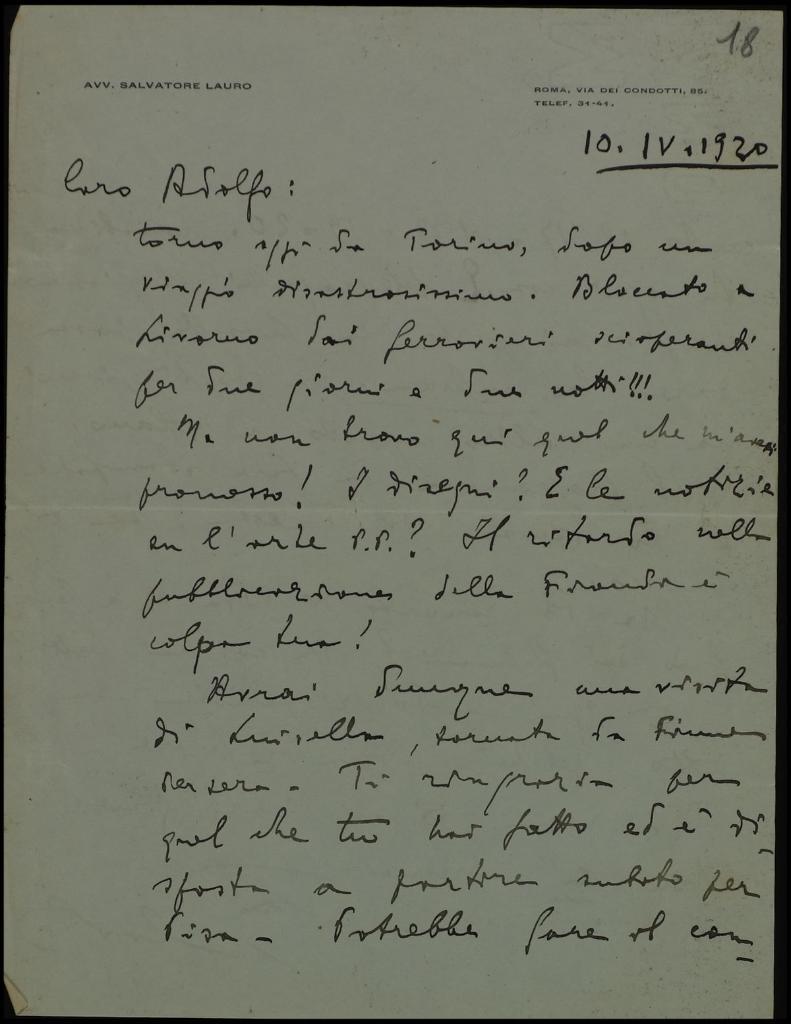 18
AVV. SALVATORE LAURO
ROMA, VIA DEI CONDOTTI, 85.
TELEF. 31-41.
10. IV. 1920
Caro Adolfo:
torno oggi da Torino, dopo un
viaggio disastrosissimo. Bloccato a
Livorno dai ferrovieri scioperanti
per due giorni e due notti!!!
Ma non trovo qui quel che m'avevi
promesso! I disegni? E le notizie
su l'arte p.p.? Il ritardo nella
pubblicazione della Fionda è
colpa tua!
Avrai dunque una visita
di Luisella, tornata da Fiume
iersera. Ti ringrazia per
quel che tu hai fatto ed è di-
sposta a partire subito per
Pisa - Potrebbe fare il com-